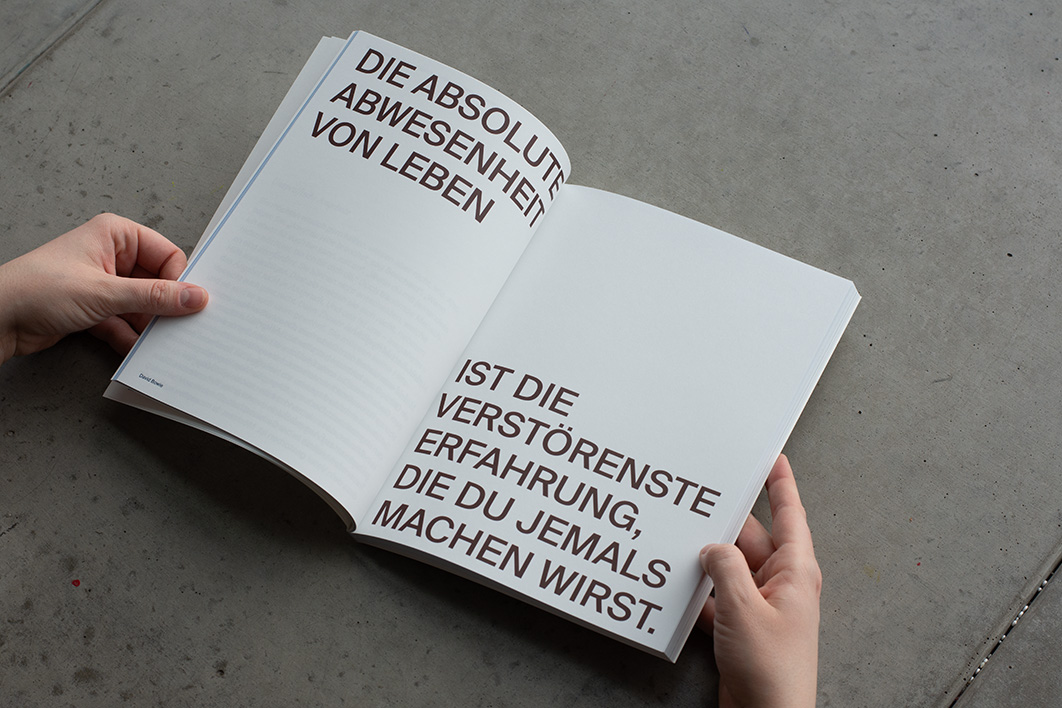 DIE ABSOLUTE
ABWESENHEIT
VON LEBEN
David Bowie
IST DIE
VERSTÖRENSTE
ERFAHRUNG,
DIE DU JEMALS
MACHEN WIRST.